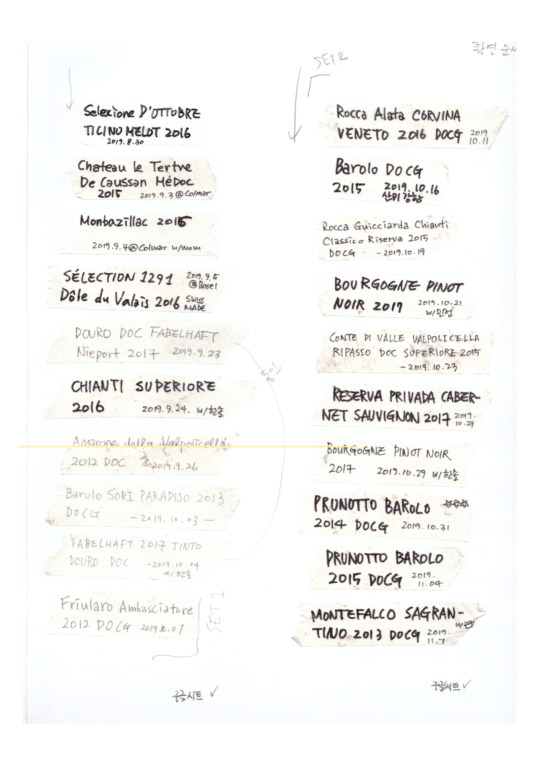 촬영 순서
Selezione D'OTTOBRE
TICINO MELOT 2016
2019.8.30
Chateau le Tertre
De Caussan MéDoc
2015 2019.9.3 @Colmar
Monbazillac 2015
2019.9.4 @Colmar w/mom
SÉLECTION 1291 2019.9.5
@Basel
Dôle du Valais 2016 SWISS
MADE
DOURO DOC FABELHAFT
Nieport 2017 2019.9.23
CHIANTI SUPERIORE
2016 2019.9.24. w/한솔
Amarone della Valpolicella
2012 DOC 2019.9.26
Barolo SORI PARADISO 2013
DOCG -2019.10.03-
FABELHAFT 2017 TINTO
DOURO DOC -2019.10.04
w/한솔
Friularo Ambasciatore
2012 DOCG 2019.10.07
SET 1
구글시트 ✓
SET 2
Rocca Alata CORVINA
VENETO 2016 DOCG 2019
10.11
Barolo DOCG
2015 2019.10.16
Rocca Guicciarda Chianti
Classico Riserva 2015
DOCG -2019.10.19
BOURGOGNE PINOT
NOIR 2017 2019.10.21
CONTE DI VALLE VALPOLICELLA
RIPASSO DOC SUPERIORE 2015
-2019.10.23
RESERVA PRIVADA CABER-
NET SAUVIGNON 2017 2019.
10.29
BOURGOGNE PINOT NOIR
2017 2019.10.29 w/한솔
PRUNOTTO BAROLO
2014 DOCG 2019.10.31
PRUNOTTO BAROLO
2015 DOCG 2019.
11.04
MONTEFALCO SAGRAN-
TINO 2013 DOCG 2019.
11.7
구글시트 ✓